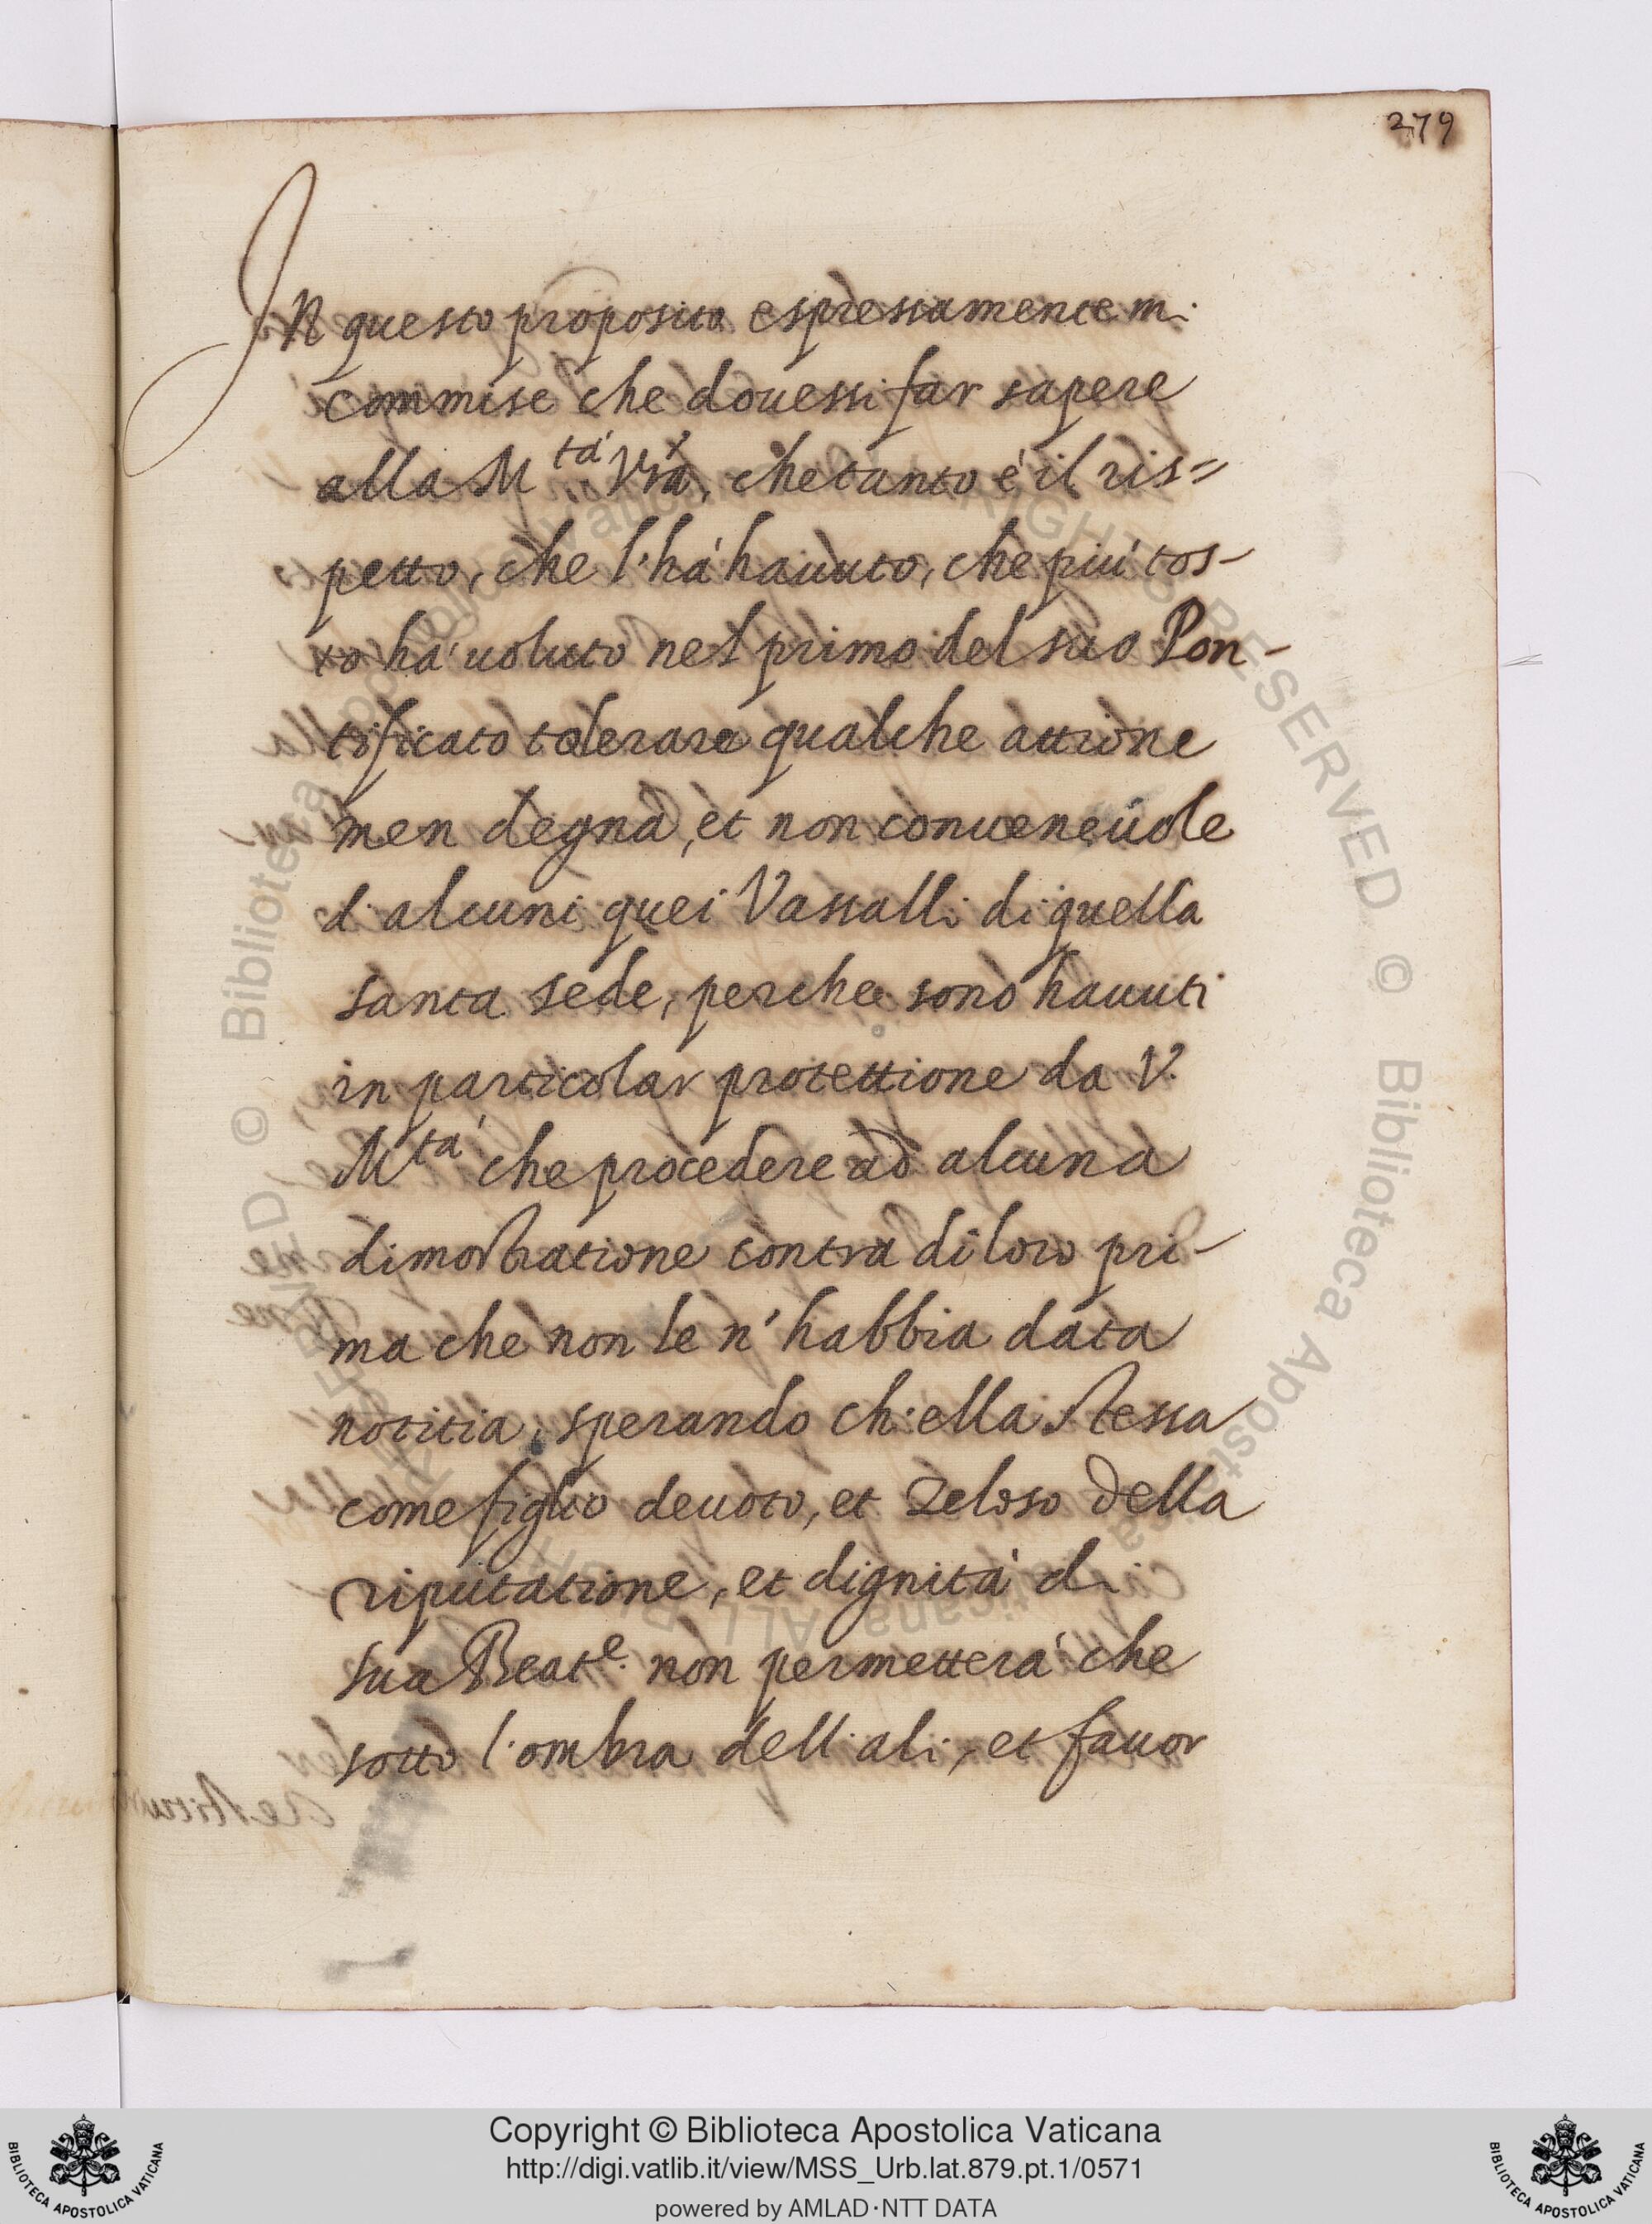 279
In questo proposito espressamente mi
commise che douessi far sapere
alla M.tà Vra, che tanto é il ris=
petto, che l'há hauuto, che piú tos-
to há uoluto nel primo del suo Pon-
tificato tolerare qualche attione
men degna, et non conueneuole
di alcuni quei Vassalli di quella
santa sede, perche sono hauuti
in particolar protettione da V.
Mtá che procedere ad alcuna
dimostratione contra di loro pri-
ma che non le n'habbia data
notitia, sperando ch'ella stessa
come figlio deuoto, et zeloso della
riputatione, et dignitá di
sua Beat.e non permetterá che
sotto l'ombra dell'ali, et fauor
Copyright © Biblioteca Apostolica Vaticana
http://digi.vatlib.it/view/MSS_Urb.lat.879.pt.1/0571
powered by AMLAD·NTT DATA
BIBLIOTECA APOSTOLICA VATICANA
BIBLIOTECA APOSTOLICA VATICANA
© Biblioteca Apostolica Vaticana ALL RIGHTS RESERVED